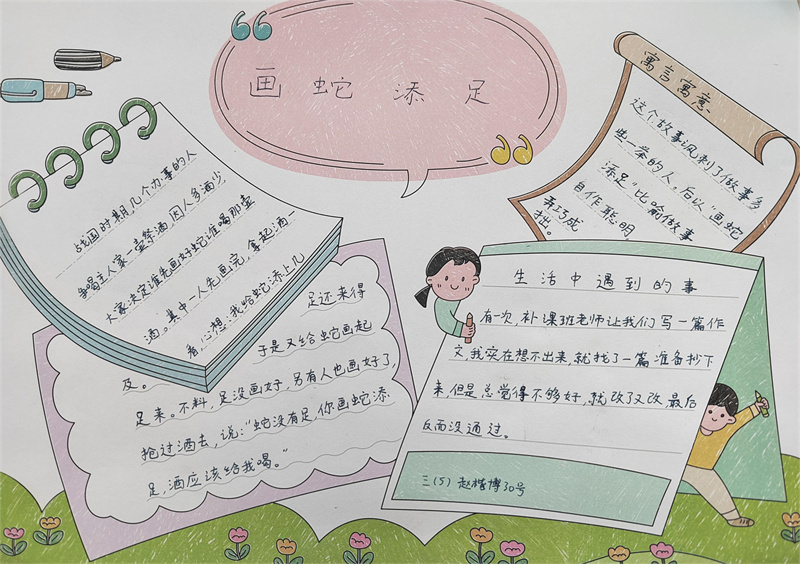 画蛇添足
战国时期,几个办事的人
争喝主人家一壶祭酒,因人多酒少
大家决定谁先画好蛇谁喝那壶
酒。其中一人先画完,拿起酒一
看,心想:我给蛇添上几
足还来得
及。于是又给蛇画起
足来。不料,足没画好,另有人也画好了,
抢过酒去,说:“蛇没有足,你画蛇添
足,酒应该给我喝。”
寓言寓意
这个故事讽刺了做事多
此一举的人。后以“画蛇
添足”比喻做事
自作聪明,
弄巧成
拙。
生活中遇到的事
有一次,补课班老师让我们写一篇作
文,我实在想不出来,就找了一篇准备抄下
来,但是总觉得不够好,就改了又改,最后
反而没通过。
三(5) 赵楷博30号